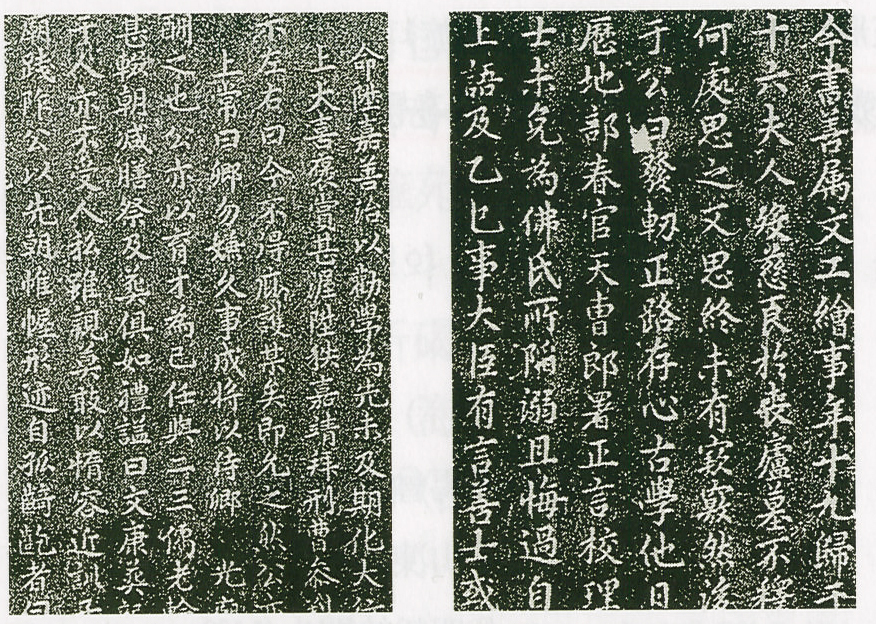 今書善属文工繪事年十九歸于
十六夫人喪廬墓不釋
何處思之又思終未有竅然後
于公曰發軔正路存心古學他日
歷地部春官天曹郎署正言校理
士未免為佛氏所陷溺且悔過自
上語及乙巳事大臣有言善士或
命陞嘉善治以勸學為先未及期化大行
上大喜褒賞甚渥陞秩嘉靖拜刑曹叅判
不左右曰今不得庇護某矣即允之然公
上常曰卿勿嫌久事成將以待卿 光廟
酬之也公亦以育才為己任與二三儒老
甚輟朝减膳祭及葬俱如禮諡曰文康葬
于人亦不受人私雖親莫敢以惰容近訓子
朝踐阼公以先朝帷幄形迹自孤齮齕者